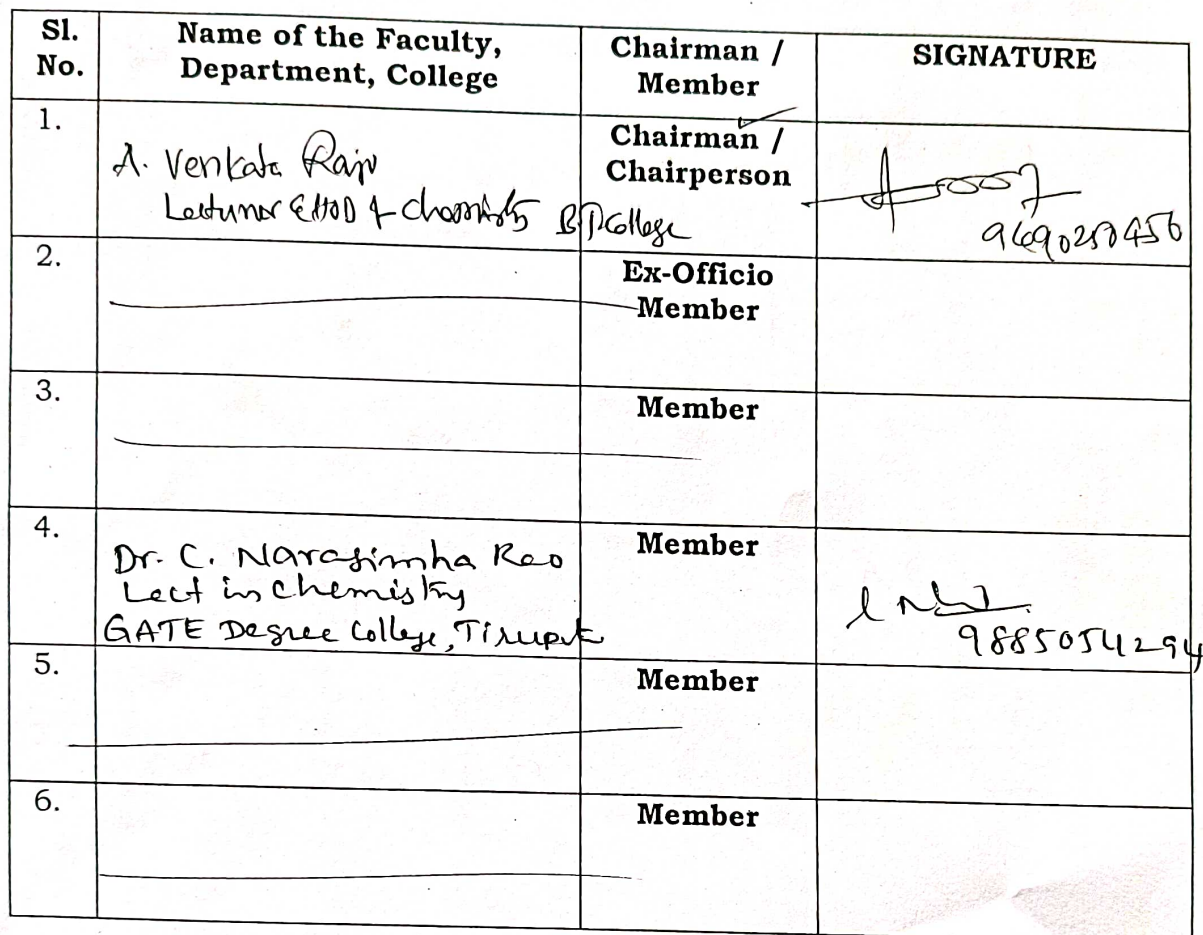 Sl. No.
Name of the Faculty, Department, College
Chairman / Member
SIGNATURE
1.
A. Venkata Raju
Lecturer & HOD of Chemistry B.T College
Chairman / Chairperson
2.
Ex-Officio Member
3.
Member
4.
Dr. C. Narasimha Rao
Lect in Chemistry
GATE Degree College, Tirupati
Member
9885054294
5.
Member
6.
Member